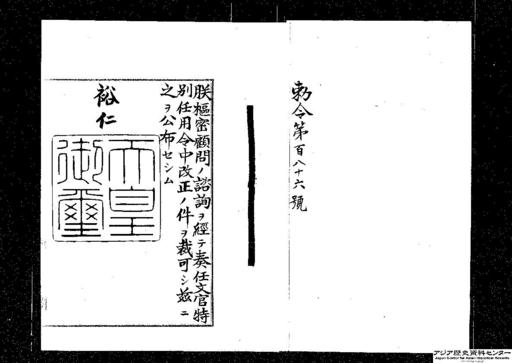 勅令第百八十六號
朕樞密顧問ノ諮詢ヲ經テ奏任文官特
別任用令中改正ノ件ヲ裁可シ茲ニ
之ヲ公布セシム
裕仁
天皇
御璽
アジア歴史資料センター
Japan Center for Asian Historical Records